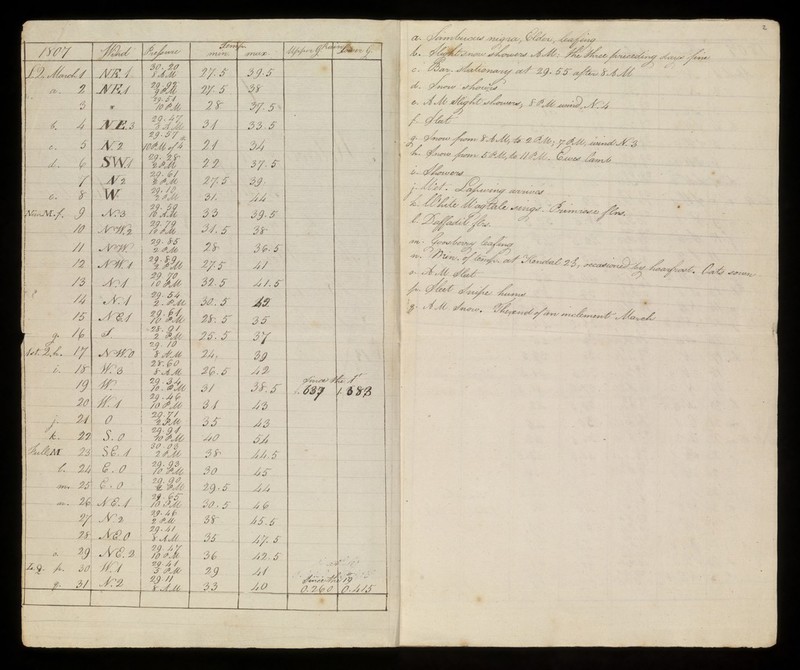 1807 Wind Pressure Temp. min max Upper G Lower G
L.Q. March 1 NE.1 30.20 8 AM 27.5 39.5
a. 2 NE.1 29.97 9 PM 27.5 38
3 " 29.51 10 PM 28 37.5
b. 4 NE.3 29.47 3 AM 31 33.5
c. 5 N.2 29.57 10 PM 21 34
d. 6 SW.1 29.28 2 PM 22 37.5
7 N.2 29.61 8 PM 27.5 39
e. 8 W 29.10 2 PM 31 44
New M. f. 9 N.3 29.59 10 AM 33 39.5
10 NW.3 29.79 10 PM 31.5 38
11 NW 29.85 2 PM 28 36.5
12 NW.1 29.89 2 PM 27.5 41
13 N.1 29.70 10 PM 32.5 41.5
14 N.1 29.54 2 PM 30.5 42
15 NE.1 29.61 10 PM 28.5 35
g. 16 S 28.91 2 PM 25.5 37
1st. Q. h. 17 NW.0 29.10 8 AM 24 39
i. 18 W.3 28.60 8 AM 26.5 42
19 W 29.34 10 PM 31 38.5 Since the 1st .637 1.383
20 W.1 29.46 10 PM 31 43
j. 21 0 29.71 2 PM 35 43
k. 22 S.0 29.91 10 PM 40 54
Full M 23 SE.1 30.03 2 PM 38 44.5
l. 24 E.0 29.93 10 PM 30 45
m. 25 E.0 29.90 2 PM 29.5 44
n. 26 NE.1 29.65 10 PM 30.5 46
27 N.2 29.48 2 PM 38 45.5
28 NE.0 29.41 8 AM 35 47.5
o. 29 NE.2 29.47 10 PM 36 42.5
L.Q. p. 30 W.1 29.41 3 PM 29 41
q. 31 N.2 29.11 8 AM 33 40 Since the 19 0.260 0.415
2
a. Sambucus nigra, Elder, leafing
b. Slight snow showers A.M. The three preceding days fine
c. Bar. stationary at 29.55 after 8 A.M
d. Snow showers
e. A.M slight showers, 8 P.M wind N.4
f. Sleet
g. Snow from 8 A.M, to 2 P.M; 7 P.M, wind N.3
h. Snow from 5 P.M, to 11 P.M. Ewes lamb
i. Showers
j. Wet. Lapwing arrives
k. White Wagtale sings. Primrose flrs.
l. Daffodil flrs.
m. Gooseberry leafing
n. Min. of temp. at Kendal 23, occasioned by hoarfrost. Oats sown
o. A.M Sleet
p. Sleet. Snipe hums
q. A.M Snow. The end of an inclement March